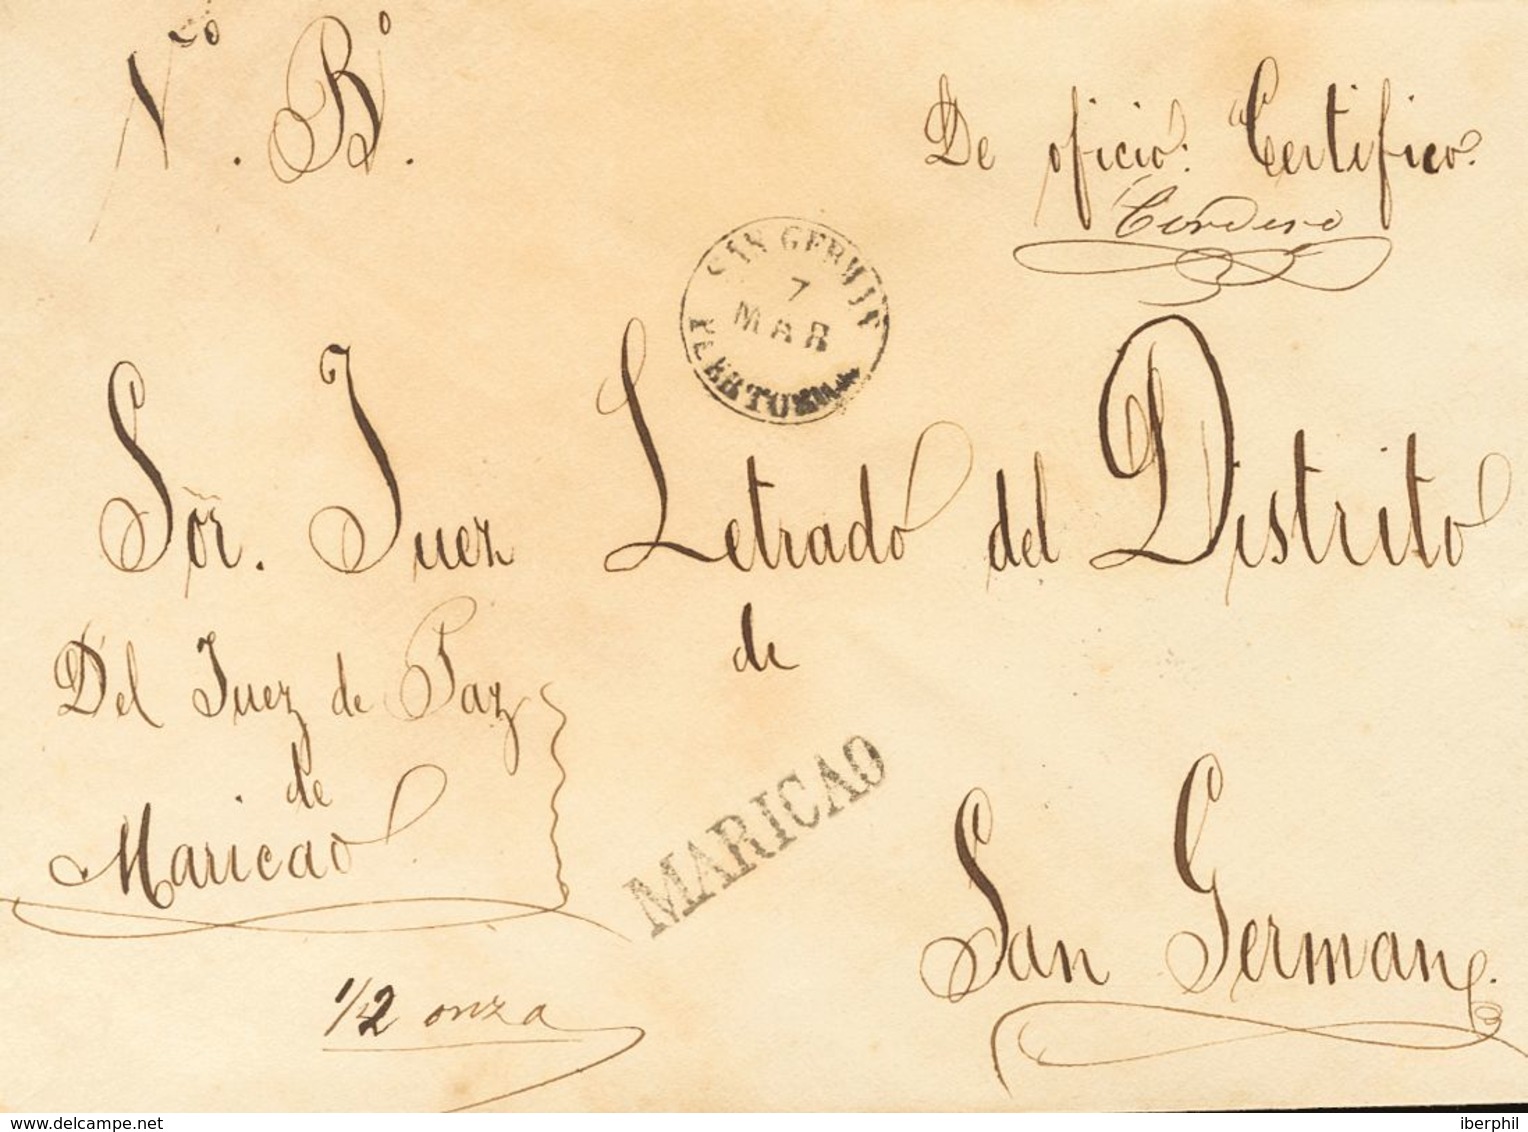 De oficio: Certifico.
Cordero
SAN GERMAN
7
MAR
PUERTO
Sor. Juez Letrado del Distrito
de
Del Juez de Paz
de
Maricao
MARICAO
San German.
1/2 onza
www.delcampe.net
iberphil